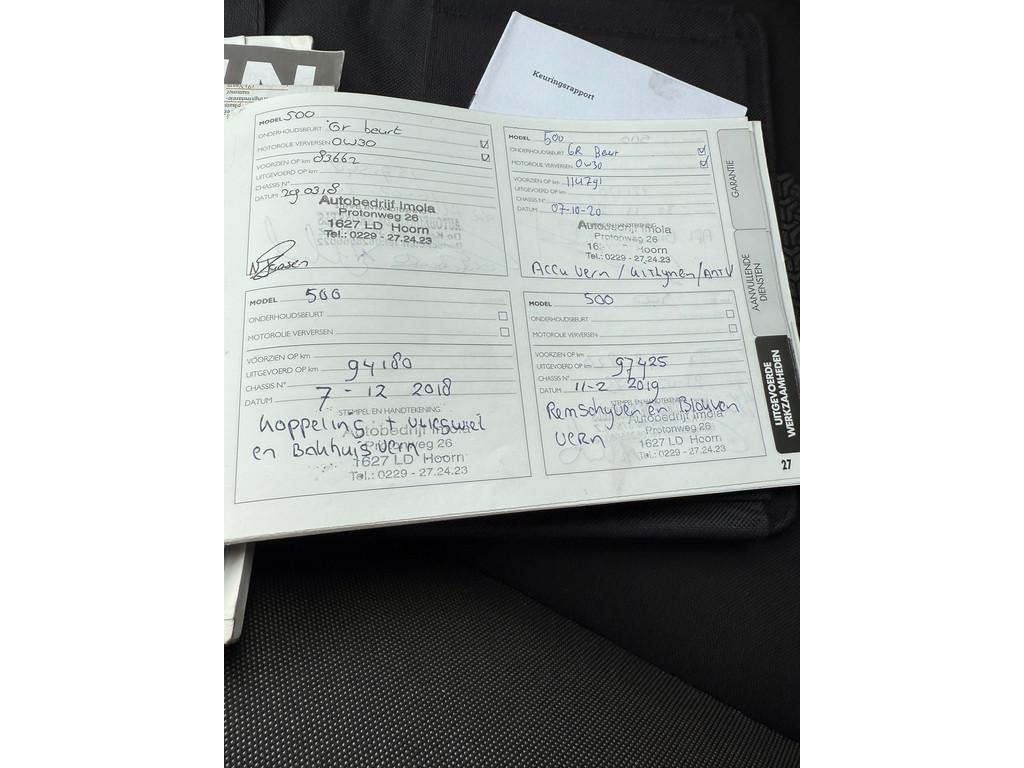 Keuringsrapport
MODEL 500
ONDERHOUDSBEURT Gr beurt
MOTOROLIE VERVERSEN 0W30
VOORZIEN OP km 83662
UITGEVOERD OP km
CHASSIS N°
DATUM 290318
STEMPEL EN HANDTEKENING
Autobedrijf Imola
Protonweg 26
1627 LD Hoorn
Tel.: 0229 - 27.24.23
MODEL 500
ONDERHOUDSBEURT GR Beurt
MOTOROLIE VERVERSEN 0W30
VOORZIEN OP km 114791
UITGEVOERD OP km
CHASSIS N°
DATUM 07-10-20
Autobedrijf Imola
Protonweg 26
Hoorn
Tel.: 0229 - 27.24.23
Accu vern / uitlynen /
MODEL 500
ONDERHOUDSBEURT
MOTOROLIE VERVERSEN
VOORZIEN OP km
UITGEVOERD OP km 94180
CHASSIS N°
DATUM 7-12 2018
STEMPEL EN HANDTEKENING
koppeling + vliegwiel
en Bakhuis vern
Autobedrijf Imola
Protonweg 26
1627 LD Hoorn
Tel.: 0229 - 27.24.23
MODEL 500
ONDERHOUDSBEURT
MOTOROLIE VERVERSEN
VOORZIEN OP km
UITGEVOERD OP km 97425
CHASSIS N°
DATUM 11-2 2019
STEMPEL EN HANDTEKENING
Remschyven en Blokken
vern
Autobedrijf Imola
Protonweg 26
1627 LD Hoorn
Tel.: 0229 - 27.24.23
GARANTIE
AANVULLENDE
DIENSTEN
UITGEVOERDE
WERKZAAMHEDEN
27